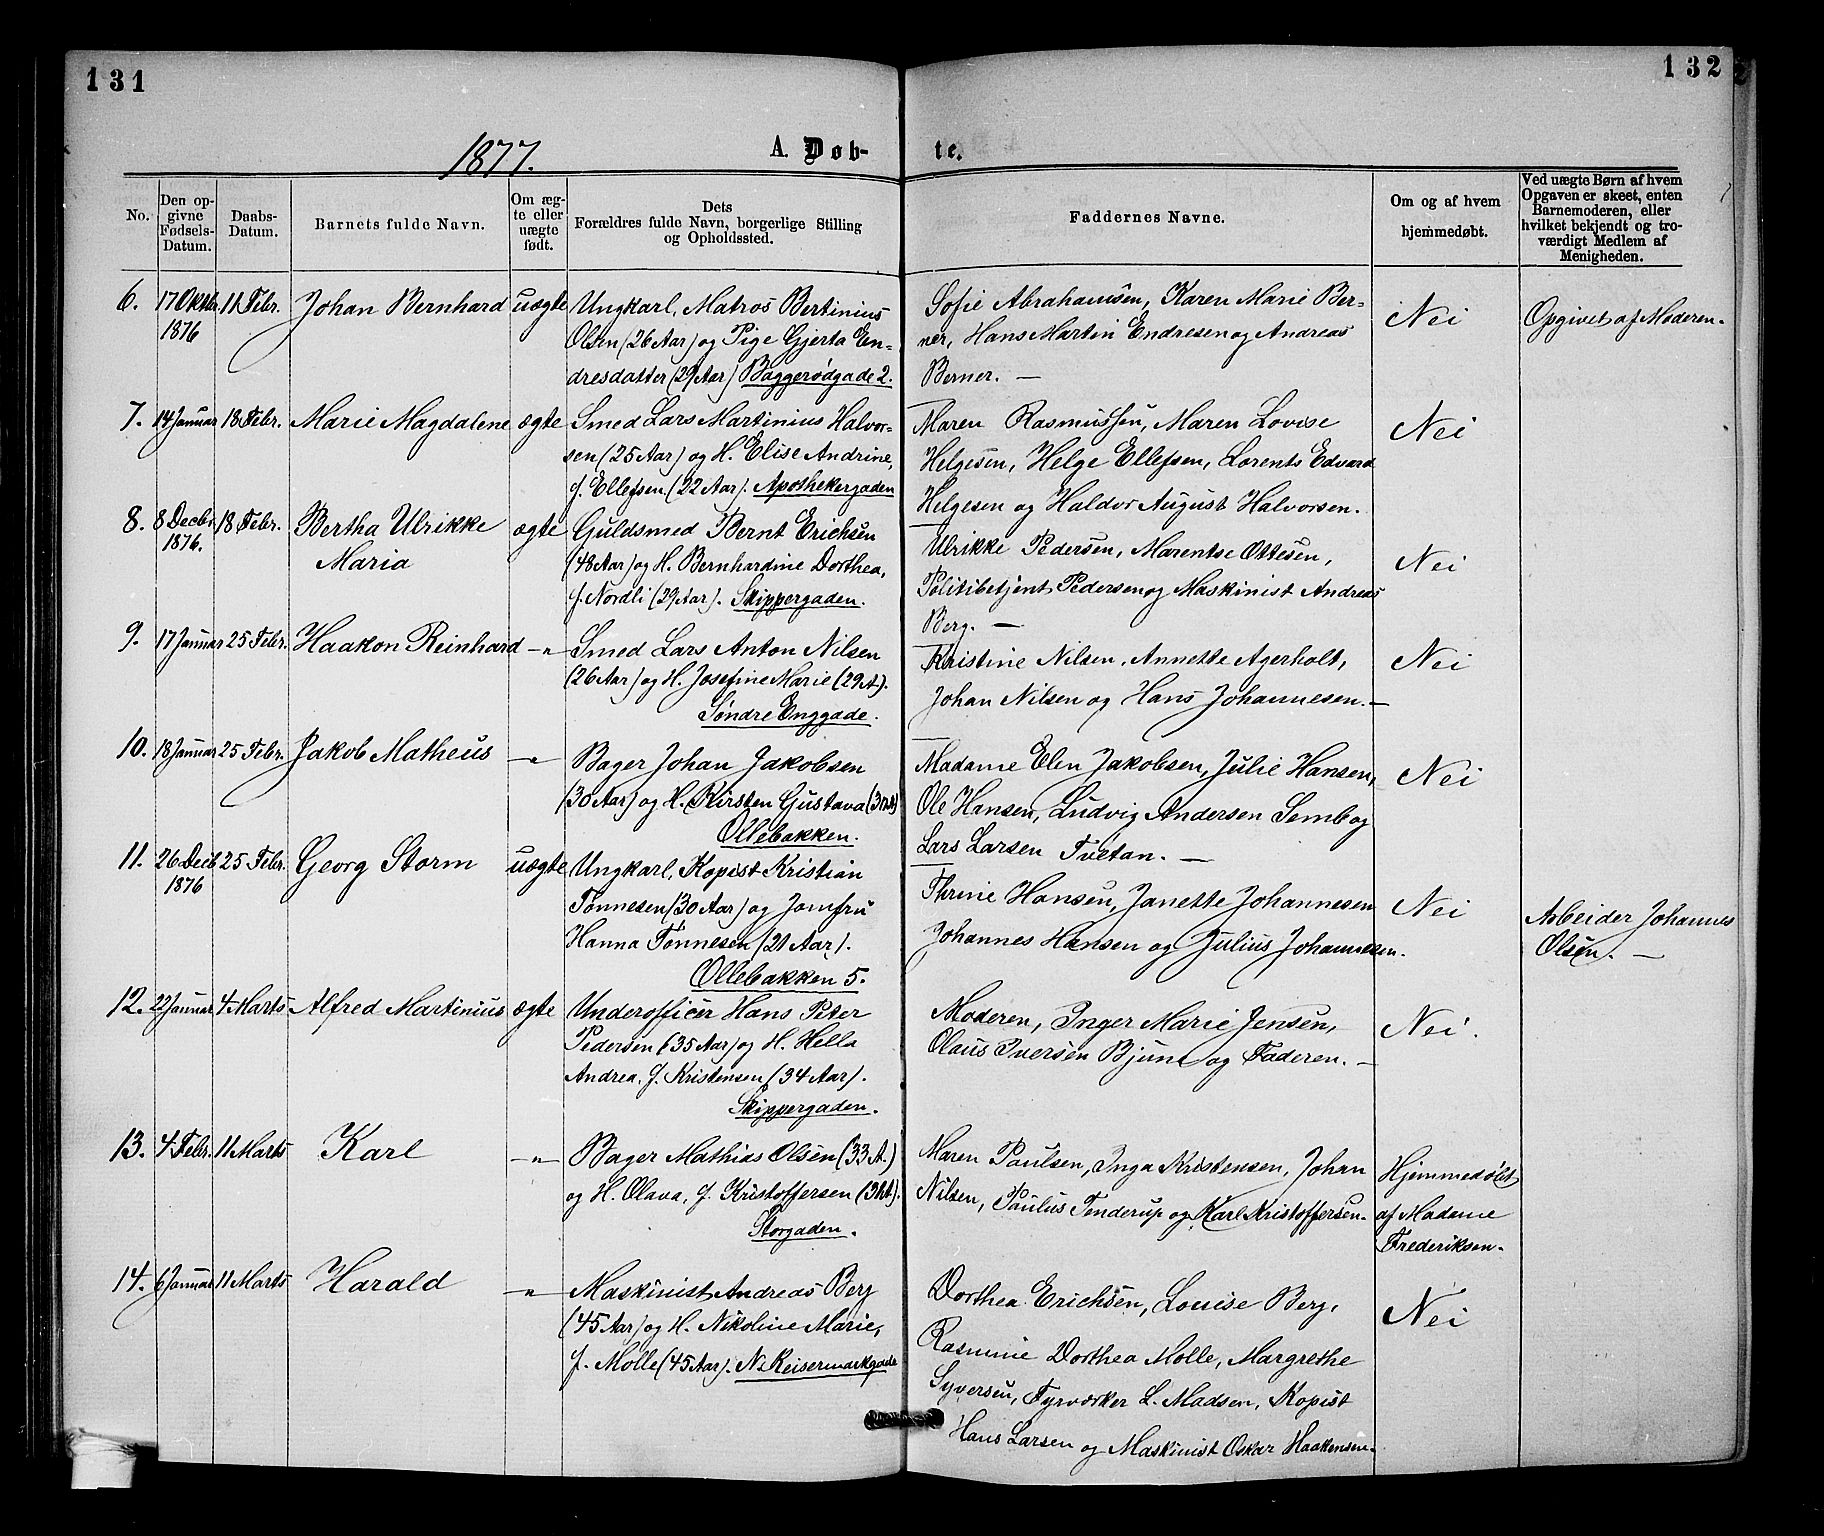 131
132
1877.
A. Døb-
te.
No.
Den op-
givne
Fødsels-
Datum.
Daabs-
Datum.
Barnets fulde Navn.
Om æg-
te eller
uægte
født.
Dets
Forældres fulde Navn, borgerlige Stilling
og Opholdssted.
Faddernes Navne.
Om og af hvem
hjemmedøbt.
Ved uægte Børn af hvem
Opgaven er skeet, enten
Barnemoderen, eller
hvilket bekjendt og tro-
værdigt Medlem af
Menigheden.
6.
17 Oktbr
1876
11 Febr.
Johan Bernhard
uægte
Ungkarl, Matros Bertinius
Olsen (26 Aar) og Pige Gjerta En-
dresdatter (29 Aar) Baggerødgade 2.
Sofie Abrahamsen, Karen Marie Ber-
ner, Hans Martin Endresen og Andreas
Berner. —
Nei
Opgivet af Moderen.
7.
14 Januar
18 Febr.
Marie Magdalene
ægte
Smed Lars Martinius Halvor-
sen (25 Aar) og H. Elise Andrine,
f. Ellefsen (22 Aar). Apothekergaden
Maren Rasmussen, Maren Lovise
Helgesen, Helge Ellefsen, Lorents Edvard
Helgesen og Haldor August Halvorsen.
Nei
8.
8 Decbr.
1876.
18 Febr.
Bertha Ulrikke
Maria
ægte
Guldsmed Bernt Erichsen
(48 Aar) og H. Bernhardine Dorthea,
f. Nordli (29 Aar). Skippergaden.
Ulrikke Pedersen, Marentse Ottesen,
Politibetjent Pedersen og Maskinist Andreas
Berg. —
Nei
9.
17 Januar
25 Febr.
Haakon Reinhard
-"-
Smed Lars Anton Nilsen
(26 Aar) og H. Josefine Marie (29 A).
Søndre Enggade.
Kristine Nilsen, Annette Agerholt,
Johan Nilsen og Hans Johannesen. —
Nei
10.
18 Januar
25 Febr.
Jakob Matheus
-"-
Bager Johan Jakobsen
(30 Aar) og H. Kirsten Gustava
Ollebakken.
Madame Elen Jakobsen, Julie Hansen,
Ole Hansen, Ludvig Andersen Semb og
Lars Larsen Tvetan. —
Nei
11.
26 Decb.
1876
25 Febr.
Georg Storm
uægte
Ungkarl, Kopist Kristian
Tønnesen (30 Aar) og Jomfru
Hanna Tønnesen (21 Aar).
Ollebakken 5.
Thrine Hansen, Janette Johannesen
Johannes Hansen og Julius Johannesen.
Nei
Arbeider Johannes
Olsen. —
12.
22 Januar
4 Marts
Alfred Martinius
ægte
Underofficer Hans Peter
Pedersen (35 Aar) og H. Hella
Andrea, f. Kristensen (34 Aar).
Skippergaden.
Moderen, Inger Marie Jensen,
Olaus Iversen Bjune og Faderen. —
Nei.
13.
4 Febr.
11 Marts
Karl
-"-
Bager Mathias Olsen (33 A.)
og H. Olava, f. Kristoffersen
Storgaden.
Maren Paulsen, Inga Kristensen, Johan
Nilsen, Paulus Tenderup og Karl Kristoffersen.
Hjemmedøbt
af Madame
Frederiksen.
14.
6 Januar
11 Marts
Harald
-"-
Maskinist Andreas Berg
(45 Aar) og H. Nikoline Marie,
f. Molle (45 Aar). N. Keisermarkgade
Dorthea Erichsen, Louise Berg,
Rasmine Dorthea Molle, Margrethe
Syversen, Fyrværker L. Madsen, Kopist
Hans Larsen og Maskinist Oskar Haakensen.
Nei